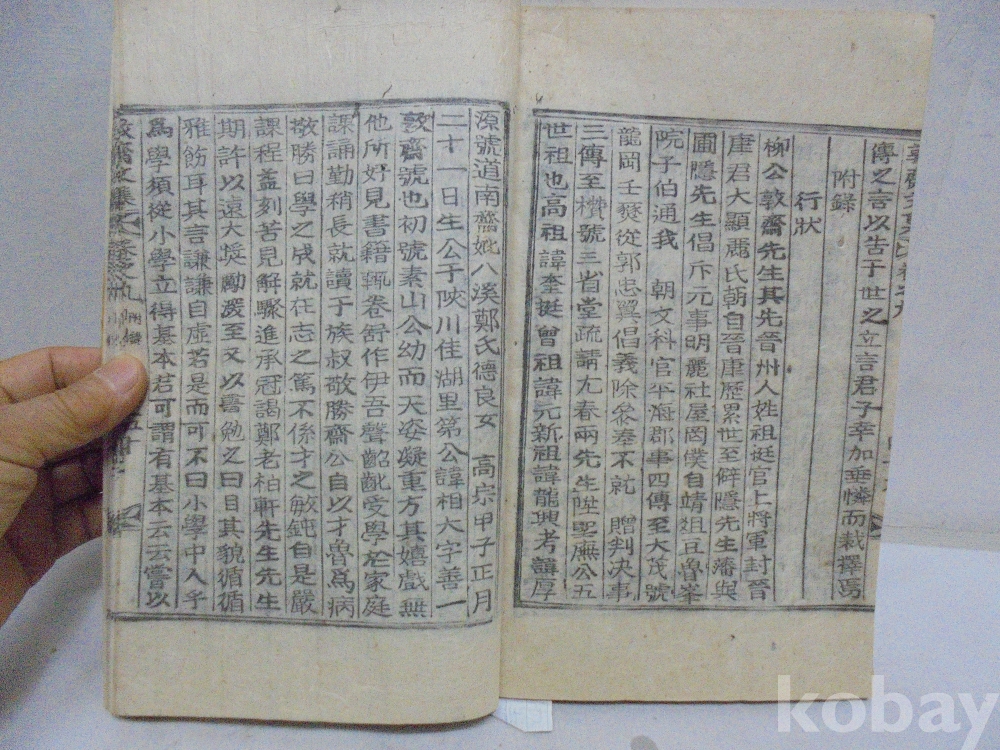 傳之言以告于世之立言君子幸加垂憐而裁擇焉
附錄
行狀
柳公敦齋先生其先晉州人姓祖挺官上將軍封晉
康君大顯麗氏朝自晉康歷累世至僻隱先生藩與
圃隱先生倡斥元事明麗社屋罔僕自靖俎豆魯峯
院子伯通我 朝文科官平海郡事四傳至大茂號
龍岡壬燹從郭忠翼倡義除參奉不就 贈判决事
三傳至欑號三省堂疏請尤春兩先生陞聖廡公五
世祖也高祖諱奎挺曾祖諱元新祖諱龍興考諱厚
源號道南齋妣八溪鄭氏德良女 高宗甲子正月
二十一日生公于陜川佳湖里第公諱相大字善一
敦齋號也初號素山公幼而天姿凝重方其嬉戲無
他所好見書籍輒卷舒作伊吾聲齠齔受學於家庭
課誦勤稍長就讀于族叔敬勝齋公自以才魯爲病
敬勝曰學之成就在志之篤不係才之敏鈍自是嚴
課程益刻苦見解驟進承冠謁鄭老柏軒先生先生
期許以遠大奬勵溲至又以書勉之曰目其貌循循
雅飭耳其言謙謙自虛若是而可不曰小學中人乎
爲學須從小學立得基本若可謂有基本云云嘗以
kobay